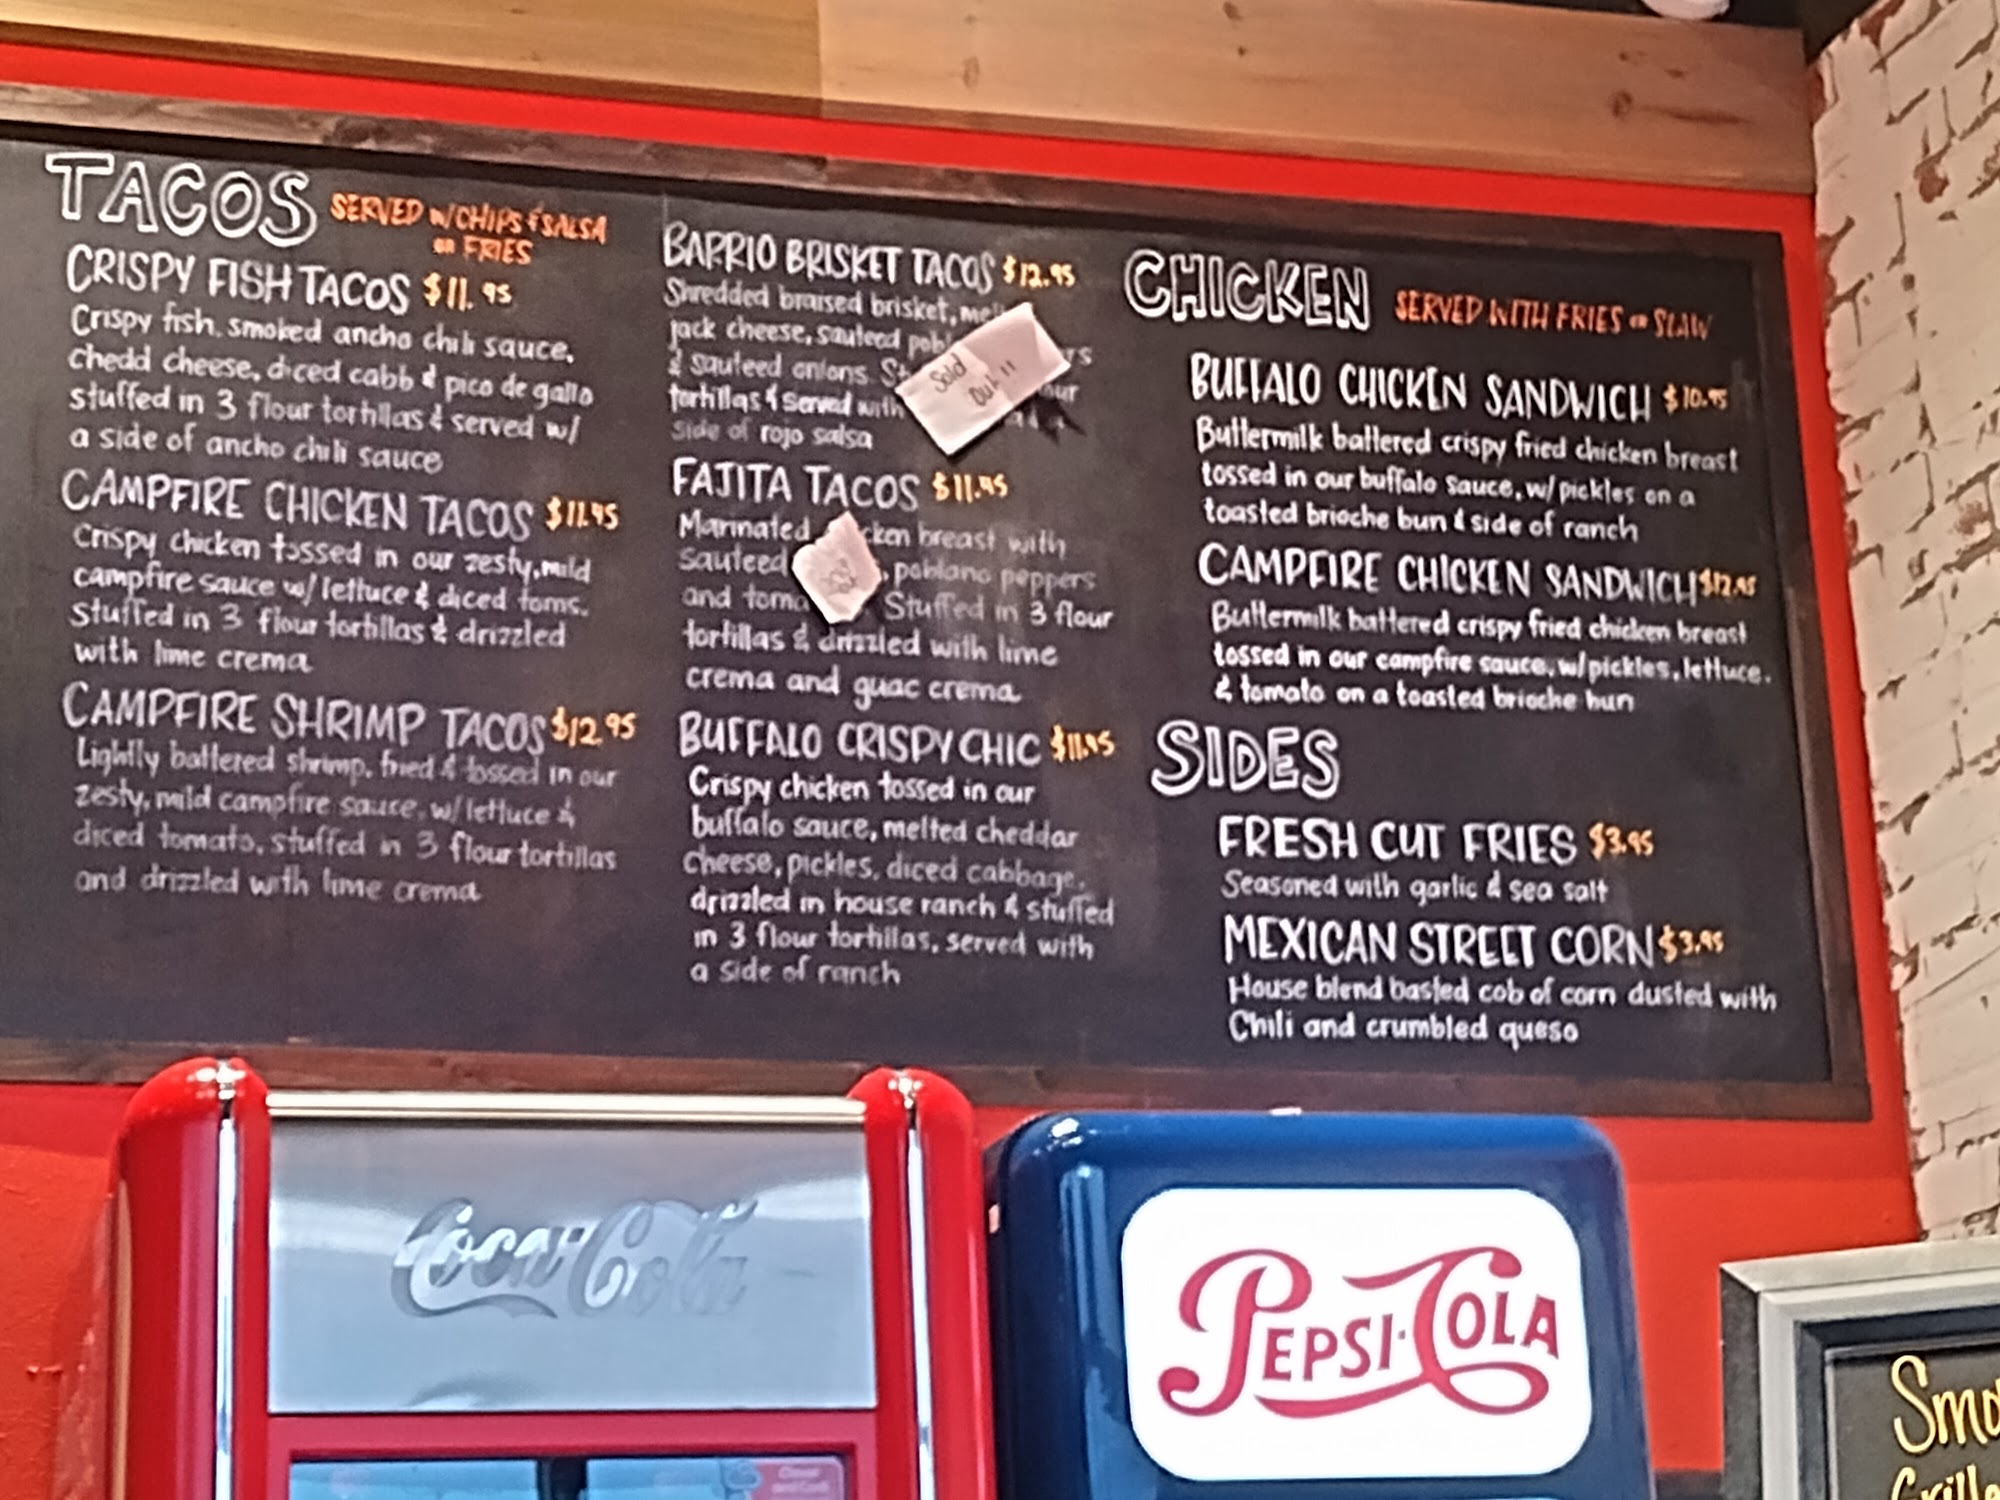 TACOS SERVED w/CHIPS & SALSA
or FRIES
CRISPY FISH TACOS $11.95
Crispy fish, smoked ancho chili sauce,
chedd cheese, diced cabb & pico de gallo
stuffed in 3 flour tortillas & served w/
a side of ancho chili sauce
CAMPFIRE CHICKEN TACOS $11.95
Crispy chicken tossed in our zesty, mild
campfire sauce w/ lettuce & diced toms.
Stuffed in 3 flour tortillas & drizzled
with lime crema
CAMPFIRE SHRIMP TACOS $12.95
Lightly battered shrimp, fried & tossed in our
zesty, mild campfire sauce, w/ lettuce &
diced tomato, stuffed in 3 flour tortillas
and drizzled with lime crema
BARRIO BRISKET TACOS $12.95
Shredded braised brisket,
jack cheese, sauteed
& sauteed onions.
tortillas & served with
side of rojo salsa
Sold
Out!!
FAJITA TACOS $11.95
Marinated breast with
Sauteed , poblano peppers
and Stuffed in 3 flour
tortillas & drizzled with lime
crema and guac crema
BUFFALO CRISPY CHIC $11.95
Crispy chicken tossed in our
buffalo sauce, melted cheddar
cheese, pickles, diced cabbage,
drizzled in house ranch & stuffed
in 3 flour tortillas, served with
a side of ranch
CHICKEN SERVED WITH FRIES or SLAW
BUFFALO CHICKEN SANDWICH $10.95
Buttermilk battered crispy fried chicken breast
tossed in our buffalo sauce, w/ pickles on a
toasted brioche bun & side of ranch
CAMPFIRE CHICKEN SANDWICH $12.95
Buttermilk battered crispy fried chicken breast
tossed in our campfire sauce, w/ pickles, lettuce,
& tomato on a toasted brioche bun
SIDES
FRESH CUT FRIES $3.95
Seasoned with garlic & sea salt
MEXICAN STREET CORN $3.95
House blend basted cob of corn dusted with
Chili and crumbled queso
Coca-Cola
PEPSI·COLA